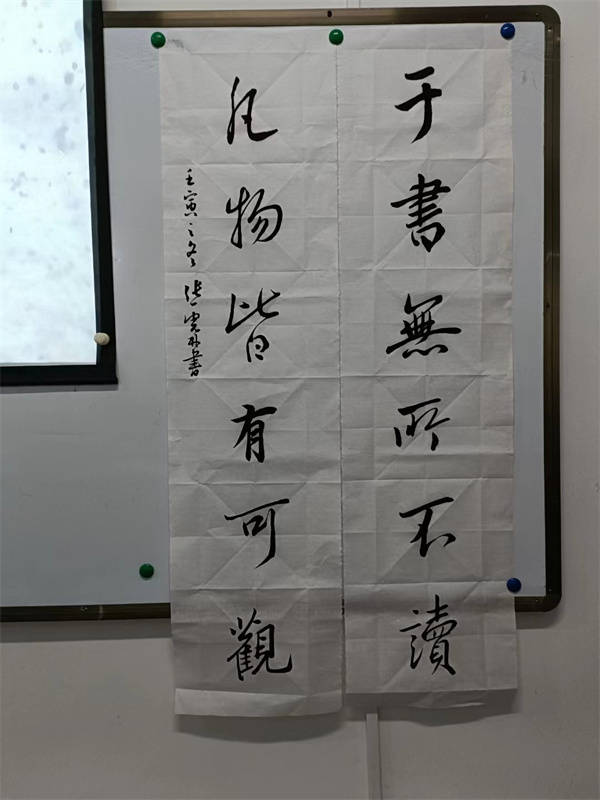 于書無所不讀
凡物皆有可觀
壬寅之冬 張
書